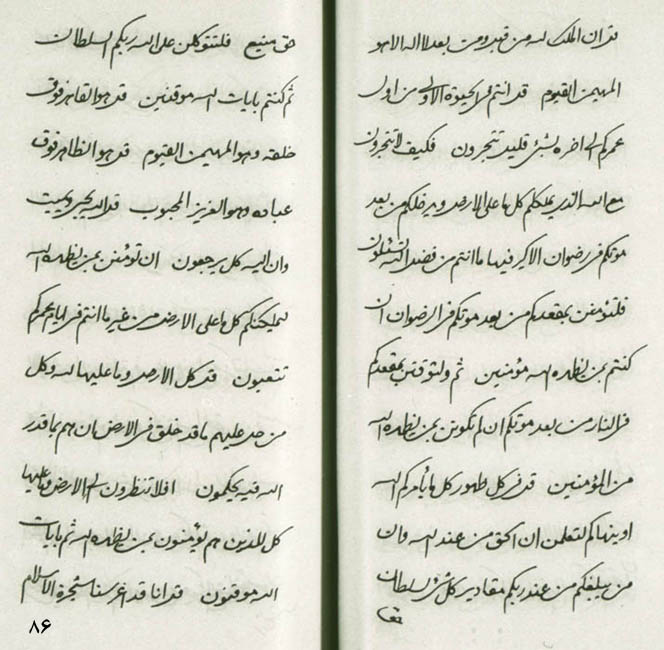 قل ان الملك لله من قبل ومن بعد لا اله الا هو
المهيمن القيوم قل انتم في الحيوة الاولى من اول
عمركم الى اخره بشئ قليل تتجرون فكيف لا تتجرون
مع الله الذي يملككم كل ما على الارض ويدخلكم من بعد
موتكم في رضوان الاكبر فيها ما انتم من فضل الله تسئلون
فلتؤمنن بمقعدكم من بعد موتكم في الرضوان ان
كنتم بمن يظهره الله مؤمنين ثم ولتوقنن بمقعدكم
في النار من بعد موتكم ان لم تكونن بمن يظهره الله
من المؤمنين قل في كل ظهور كل ما يأمركم الله
او ينهاكم لتعلمن ان الحق من عند الله وان
من يبلغكم من عند ربكم مقادير كل شئ ولسلطان
حق منيع فلتتوكلن على الله ربكم السلطان
ثم كنتم بايات الله موقنين قل هو القاهر فوق
خلقه وهو المهيمن القيوم قل هو الظاهر فوق
عباده وهو العزيز المحبوب قل الله يحيي ويميت
وان اليه كل يرجعون ان تؤمنن بمن يظهره الله
ليملكنكم كل ما على الارض من غير ما انتم في ايام عمركم
تتعبون قل كل الارض وما عليها لله وكل
من حد عليهم ما قد خلق في الارض ان هم بما قدر
الله فيه يحكمون افلا تنظرون الى الارض وما عليها
كل للذين هم يؤمنون بمن يظهره الله ثم بايات
الله موقنون قل انا قد اغرسنا شجرة الاسلام
۸۶